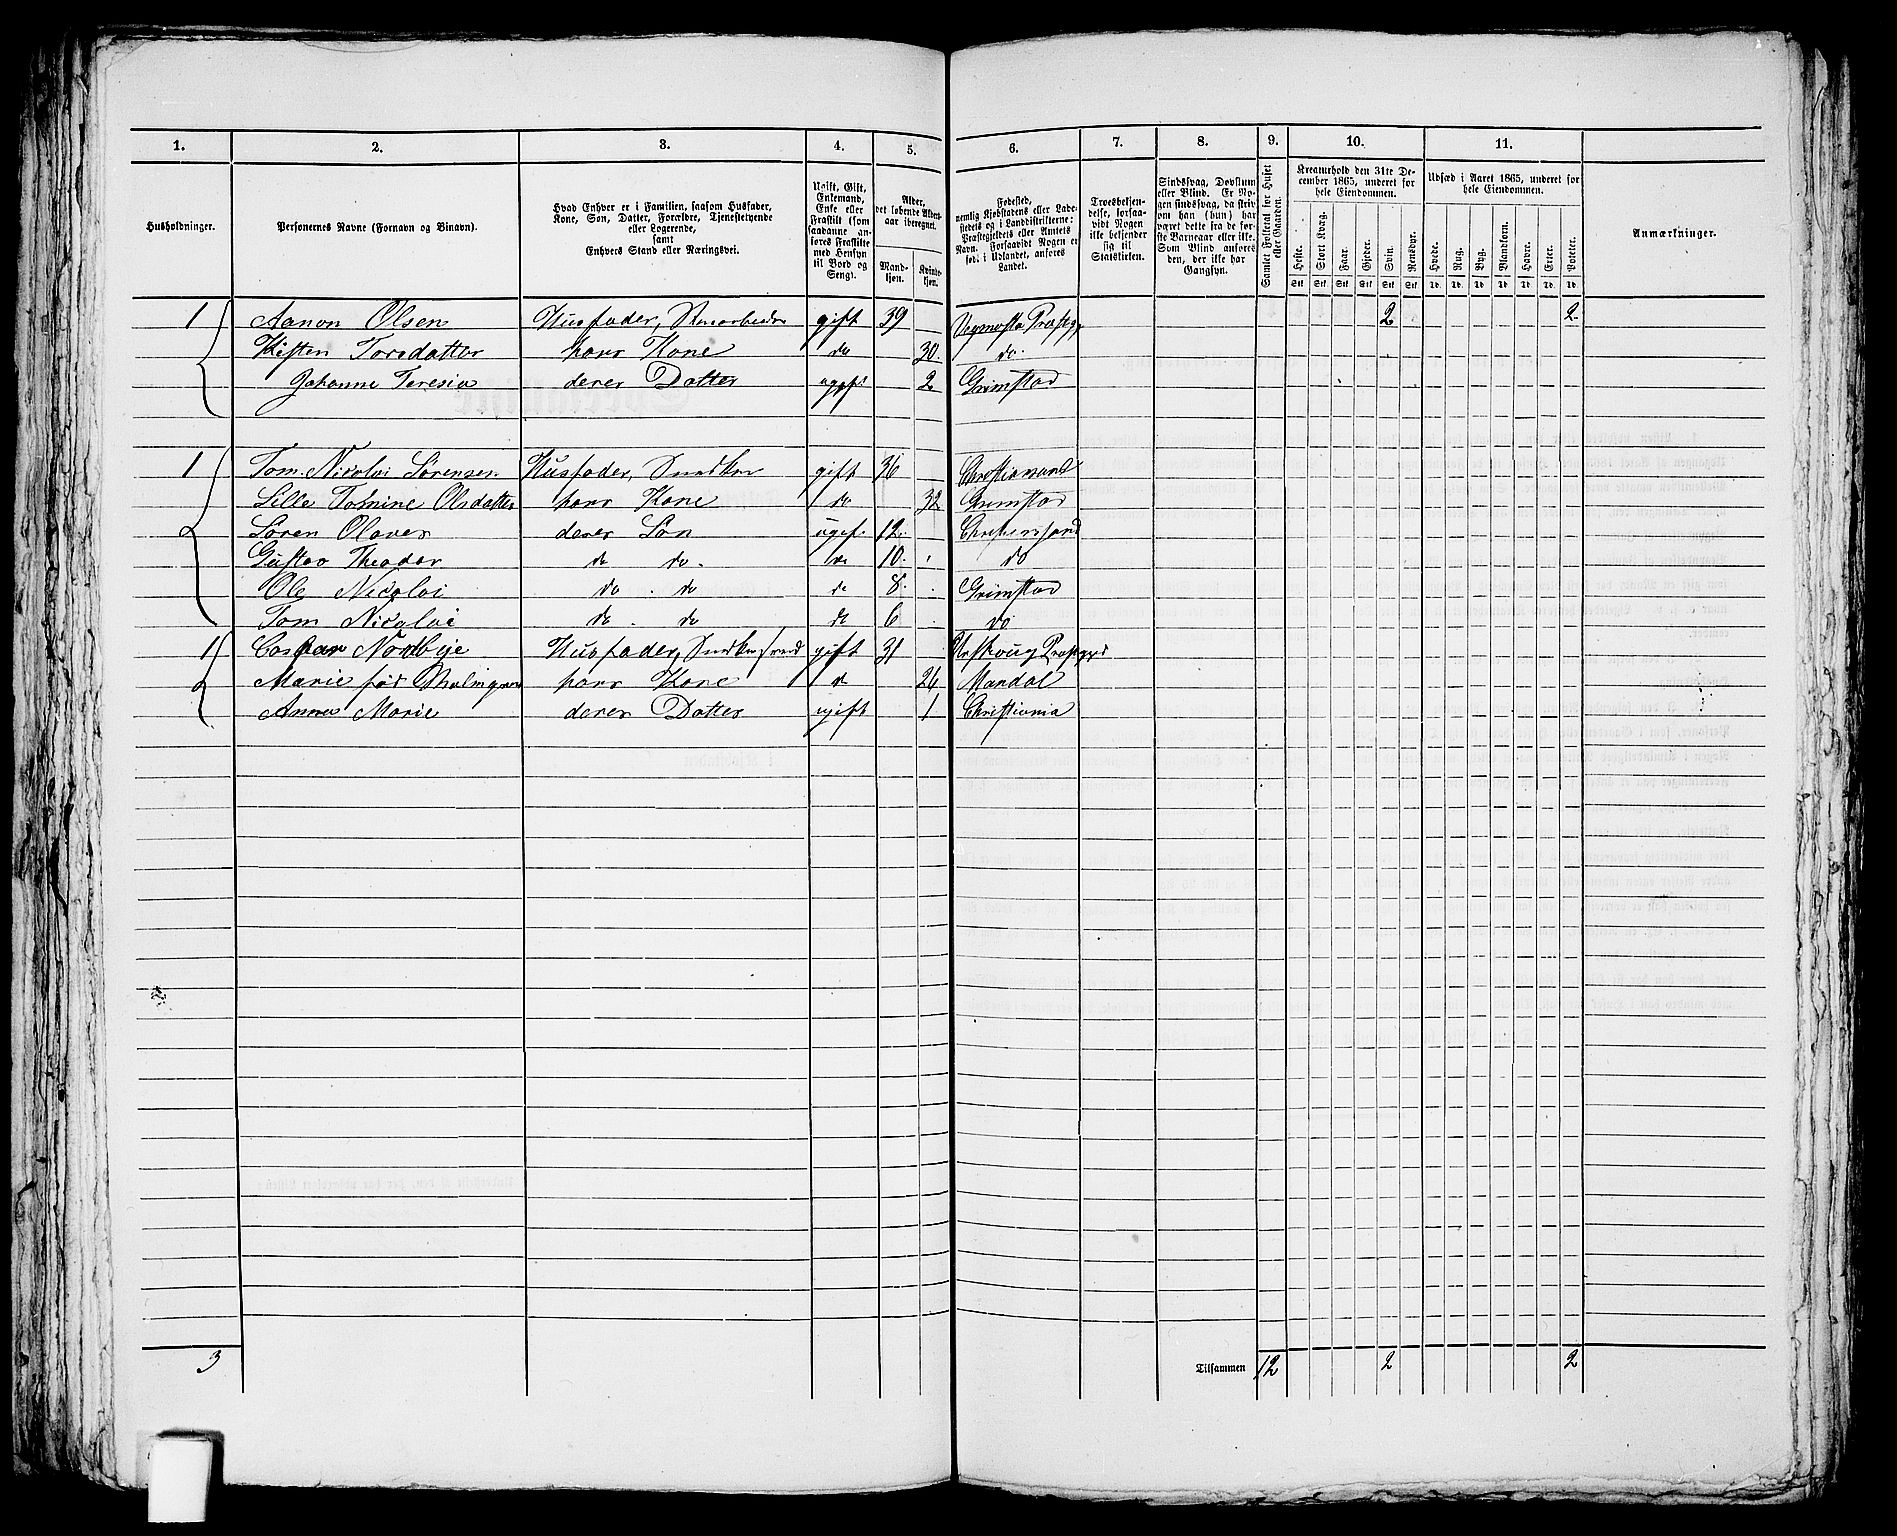 1. 2. 3. 4. 5. 6. 7. 8. 9. 10. 11.
Husholdninger.
Personernes Navne (Fornavn og Binavn).
Hvad Enhver er i Familien, saasom Husfader,
Kone, Søn, Datter, Forældre, Tjenestetyende
eller Logerende,
samt
Enhvers Stand eller Næringsvei.
Ugift, Gift,
Enkemand,
Enke eller
Fraskilt (som
saadanne anføres Fraskilte
med Hensyn
til Bord og
Seng).
Alder,
det løbende Alders-
aar iberegnet.
Mandkjøn.
Kvindekjøn.
Fødested,
nemlig Kjøbstadens eller Ladestedets og i Landdistrikterne:
Præstegjeldets eller Amtets
Navn. Forsaavidt Nogen er
fød i Udlandet, anføres
Landet.
Troesbekjendelse, forsaavidt Nogen
ikke bekjender
sig til
Statskirken.
Sindssvag, Døvstum
eller Blind. Er Nogen sindssvag, da skriv
om han (hun) har
været dette fra de første Barneaar eller ikke.
Som Blind anføres
den, der ikke har
Gangsyn.
Samlet Folketal for Huset
eller Gaarden.
Kreaturhold den 31te December 1865, underet for
hele Eiendommen.
Heste. Stort Kvæg. Faar. Gjeder. Svin. Rensdyr.
Udsæd i Aaret 1865, underet for
hele Eiendommen.
Hvede. Rug. Byg. Blandkorn. Havre. Erter. Poteter.
Anmærkninger.
Stk Stk Stk Stk Stk Stk Td. Td. Td. Td. Td. Td. Td.
1 Aanon Olsen Husfader, gift 39 2 2
Kisten Torsdatter hans Kone do 30. do.
Johanne Teresia deres Datter 2 Grimstad
1 Tom Nicolai Sørensen Husfader, Snedker gift 36 Christiansand
Sille Tomine Olsdatter hans Kone do 32 Grimstad
Søren Olaves deres Søn ugift 12. Christiansand
Gustav Theodor do do. do 10. do
Ole Nicolai do do do 8. Grimstad
Tom Nicolai do. do do 6 do
1 Caspar Nordbye Husfader, gift 31 Præstegjd
Marie født hans Kone do 26 Mandal
Anna Marie deres Datter ugift 1 Christiania
3 Tilsammen 12 2 2